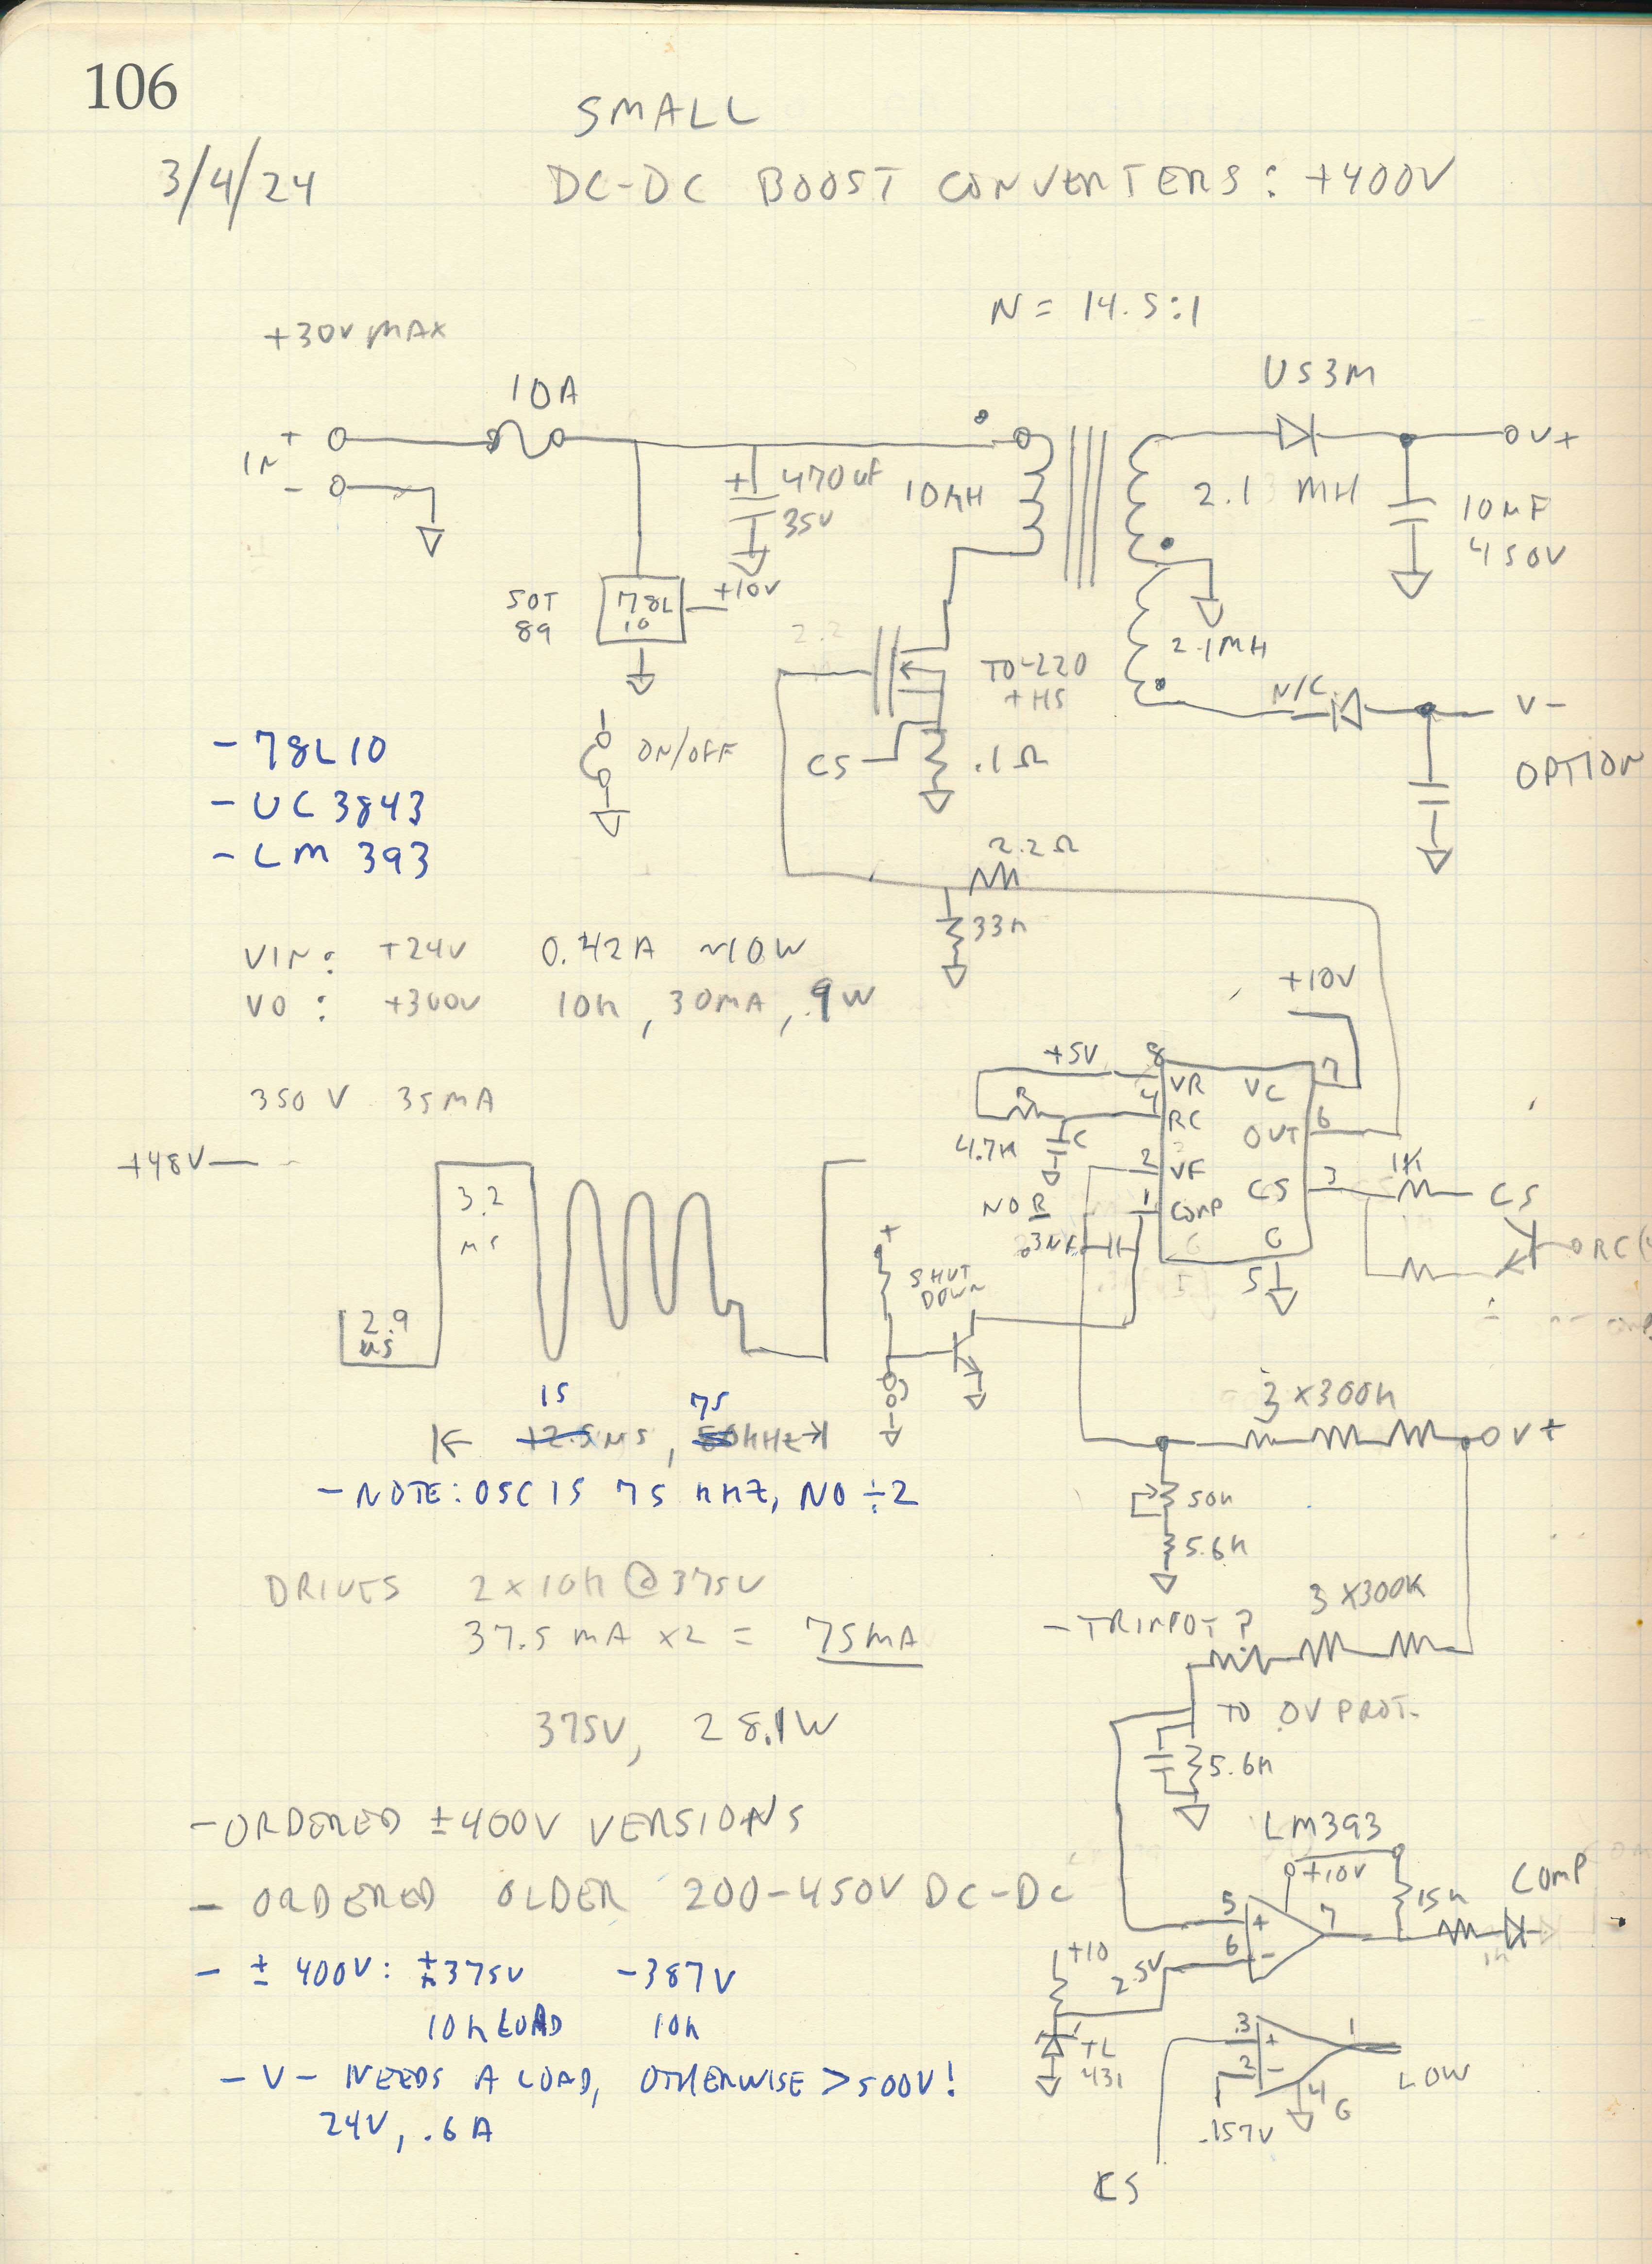 106
SMALL
3/4/24 DC-DC BOOST CONVERTERS: +400V
N = 14.5:1
+30V MAX
US3M
10A
IN + -
V+
+ 470uF
35V
10µH
2.1 MH
10µF
450V
SOT
89
78L
10
+10V
2.2
TO-220
+HS
2.1MH
N/C
V-
OPTION
ON/OFF
CS
.1Ω
- 78L10
- UC3843
- LM 393
2.2Ω
33K
VIN: +24V 0.42A ~10W
VO: +300V 10K, 30MA, .9W
+10V
+5V
8 VR VC 7
4 RC OUT 6
2 VF
1 COMP CS 3
G
5
R
4.7K
C
NO R
.3NF
1K
CS
RC(4
350 V 35MA
+48V
3.2
µS
2.9
µS
+
SHUT
DOWN
15 75
|← 12.5µS, 50KHZ →|
- NOTE: OSC IS 75 KHZ, NO ÷2
3 x300K
V+
50K
5.6K
DRIVES 2 x 10K @ 375V
37.5 MA x2 = 75MA
- TRIMPOT?
3 x300K
375V, 28.1W
TO OV PROT.
5.6K
- ORDERED ±400V VERSIONS
- ORDERED OLDER 200-450V DC-DC
LM393
+10V
15K
COMP
1K
5 +
6 -
7
+10
2.5V
TL
431
- ± 400V: +375V -387V
10K LOAD 10K
- V- NEEDS A LOAD, OTHERWISE >500V!
24V, .6A
3 +
2 -
1
4 G
LOW
.157V
CS